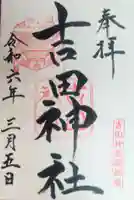 奉拝
吉田神社
令和六年 三月五日